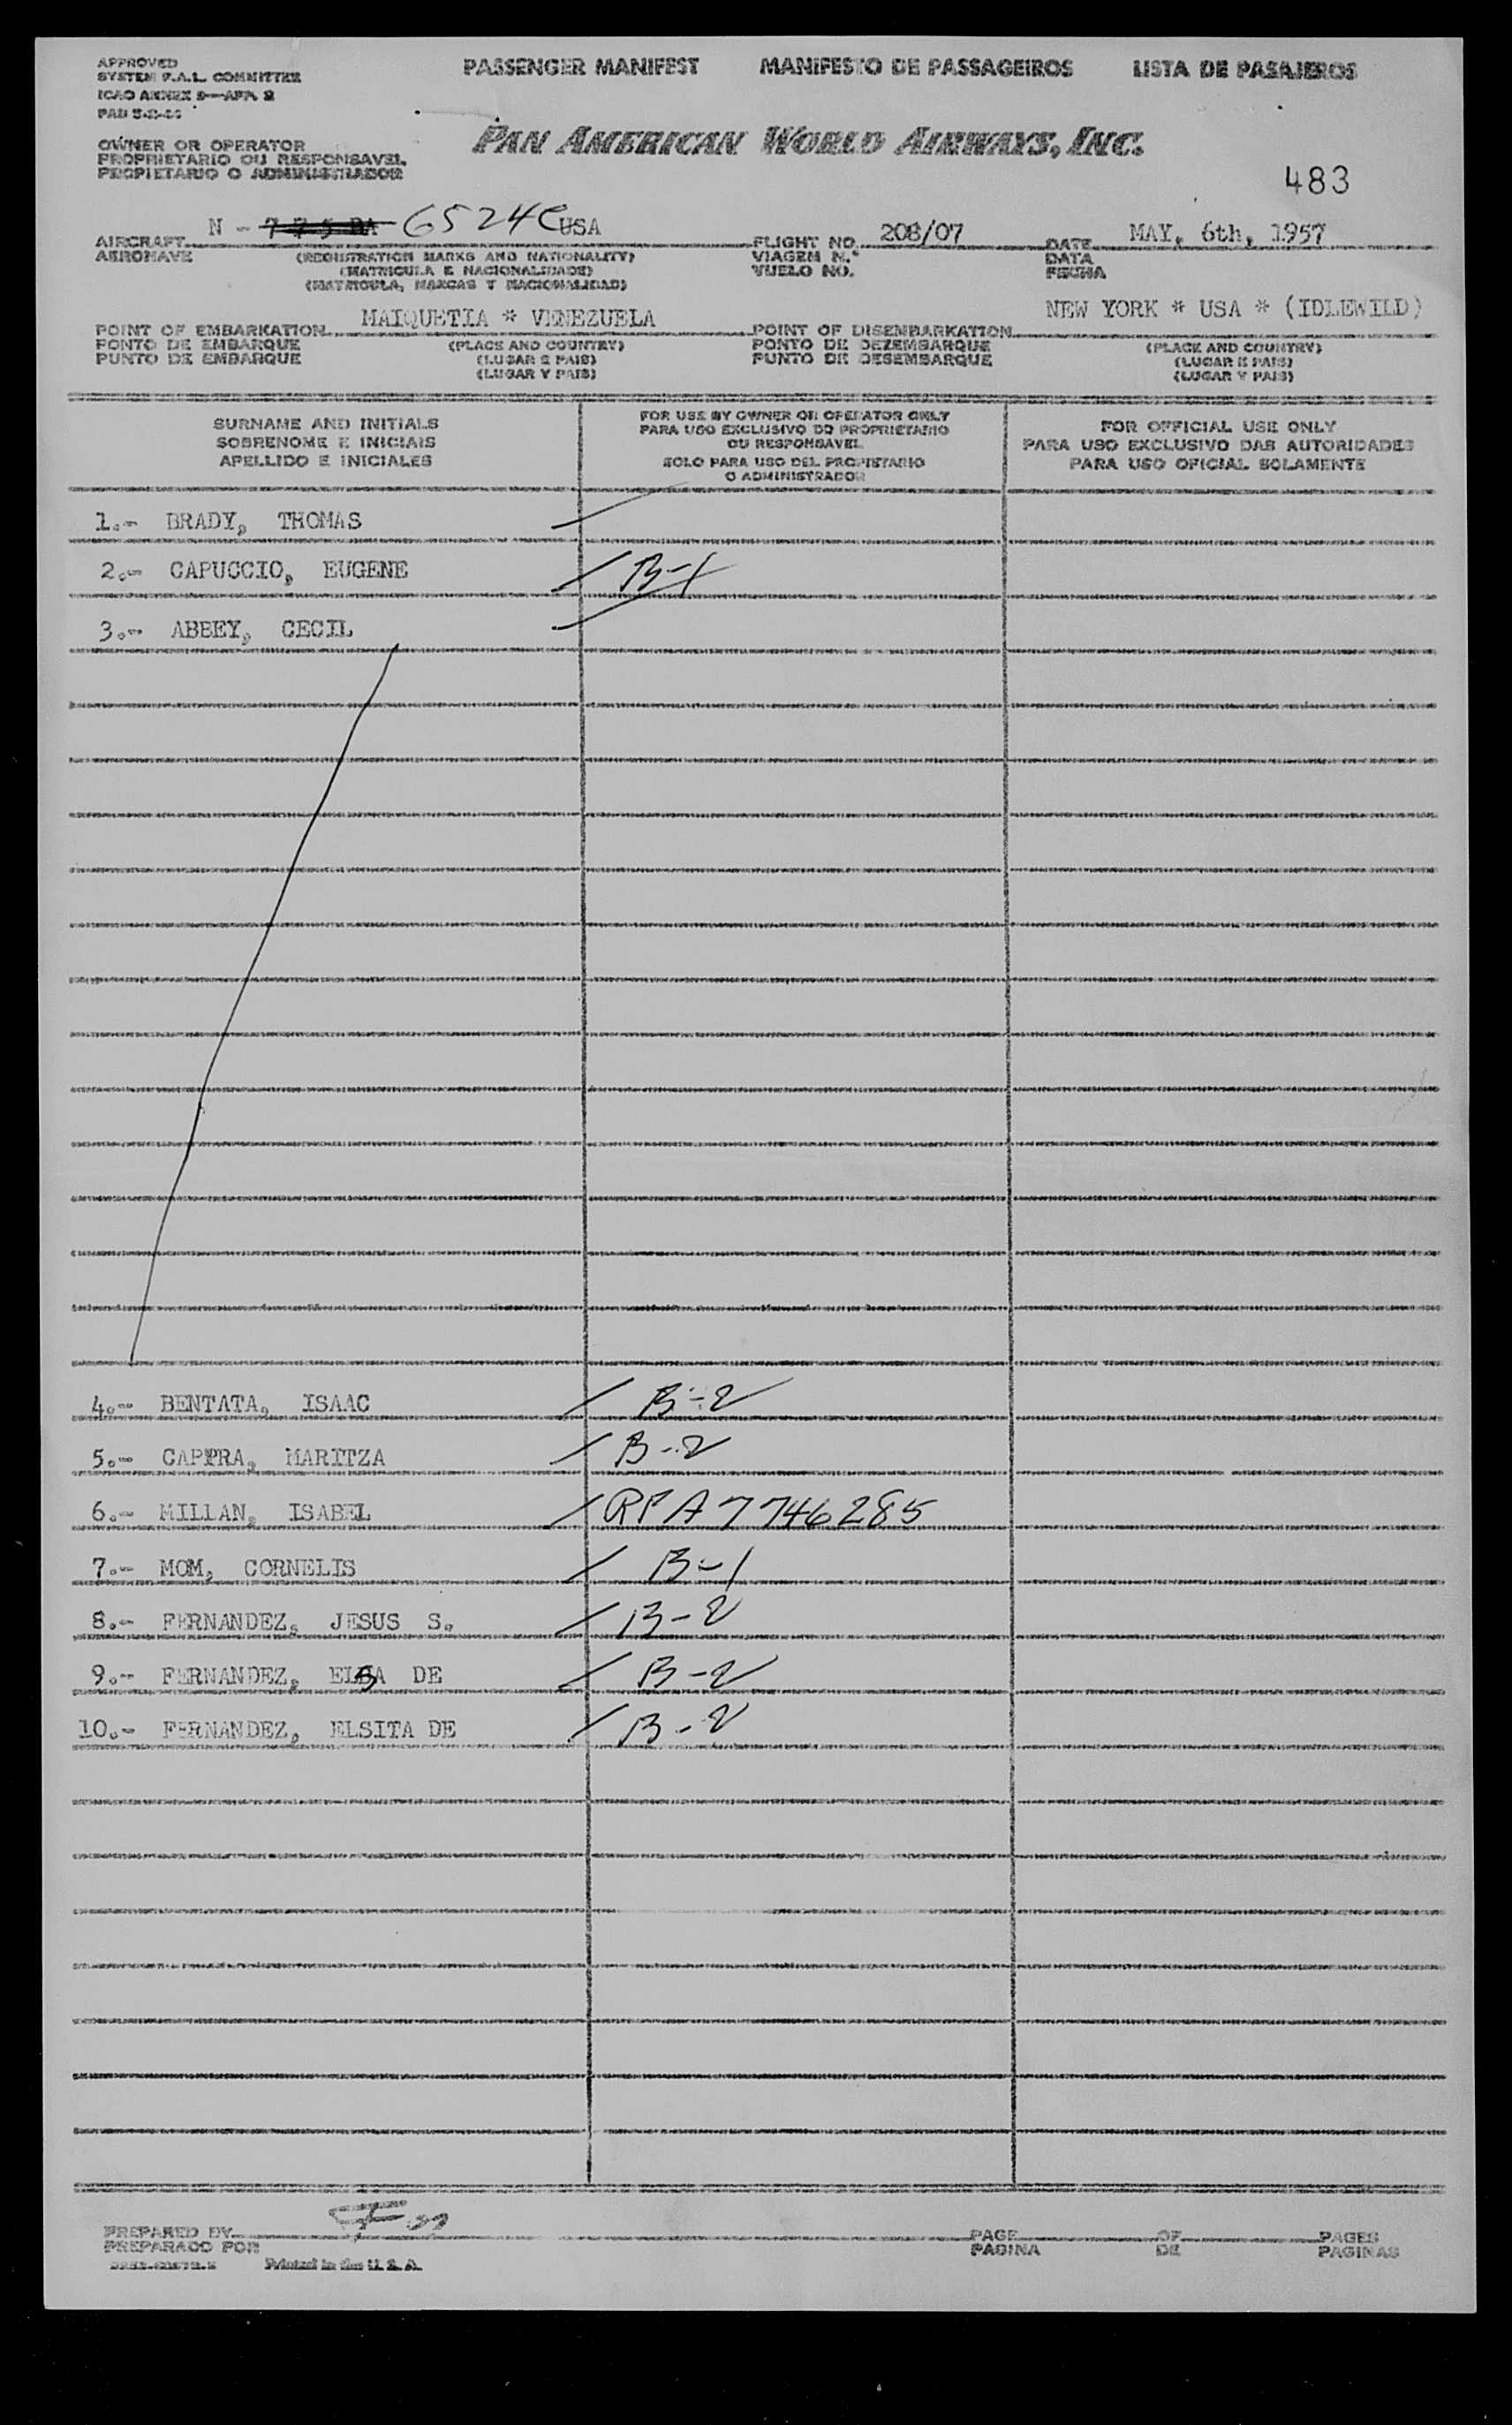 APPROVED
SYSTEM F.A.L. COMMITTEE
ICAO ANNEX 9—APP. 2
PASSENGER MANIFEST MANIFESTO DE PASSAGEIROS LISTA DE PASAJEROS
PAN AMERICAN WORLD AIRWAYS, INC.
OWNER OR OPERATOR
PROPRIETARIO OU RESPONSAVEL
PROPIETARIO O ADMINISTRADOR
483
AIRCRAFT N - 6524C USA FLIGHT NO. 208/07 DATE MAY, 6th, 1957
AERONAVE (REGISTRATION MARKS AND NATIONALITY) VIAGEM N.º DATA
(MATRICULA E NACIONALIDADE) VUELO NO. FECHA
(MATRICULA, MARCAS Y NACIONALIDAD)
POINT OF EMBARKATION MAIQUETIA * VENEZUELA POINT OF DISEMBARKATION NEW YORK * USA * (IDLEWILD)
PONTO DE EMBARQUE (PLACE AND COUNTRY) PONTO DE DEZEMBARQUE (PLACE AND COUNTRY)
PUNTO DE EMBARQUE (LUGAR E PAIS) PUNTO DE DESEMBARQUE (LUGAR E PAIS)
(LUGAR Y PAIS) (LUGAR Y PAIS)
SURNAME AND INITIALS
SOBRENOME E INICIAIS
APELLIDO E INICIALES
FOR USE BY OWNER OR OPERATOR ONLY
PARA USO EXCLUSIVO DO PROPRIETARIO
OU RESPONSAVEL
SOLO PARA USO DEL PROPIETARIO
O ADMINISTRADOR
FOR OFFICIAL USE ONLY
PARA USO EXCLUSIVO DAS AUTORIDADES
PARA USO OFICIAL SOLAMENTE
1.- BRADY, THOMAS
2.- CAPUCCIO, EUGENE B-1
3.- ABBEY, CECIL
4.- BENTATA, ISAAC B-2
5.- MARITZA B-2
6.- MILLAN, ISABEL RPA 7746285
7.- MOM, CORNELIS B-1
8.- FERNANDEZ, JESUS S. B-2
9.- FERNANDEZ, ELSA DE B-2
10.- FERNANDEZ, ELSITA DE B-2
PREPARED BY PAGE OF PAGES
PREPARADO POR PAGINA DE PAGINAS
Printed in the U. S. A.